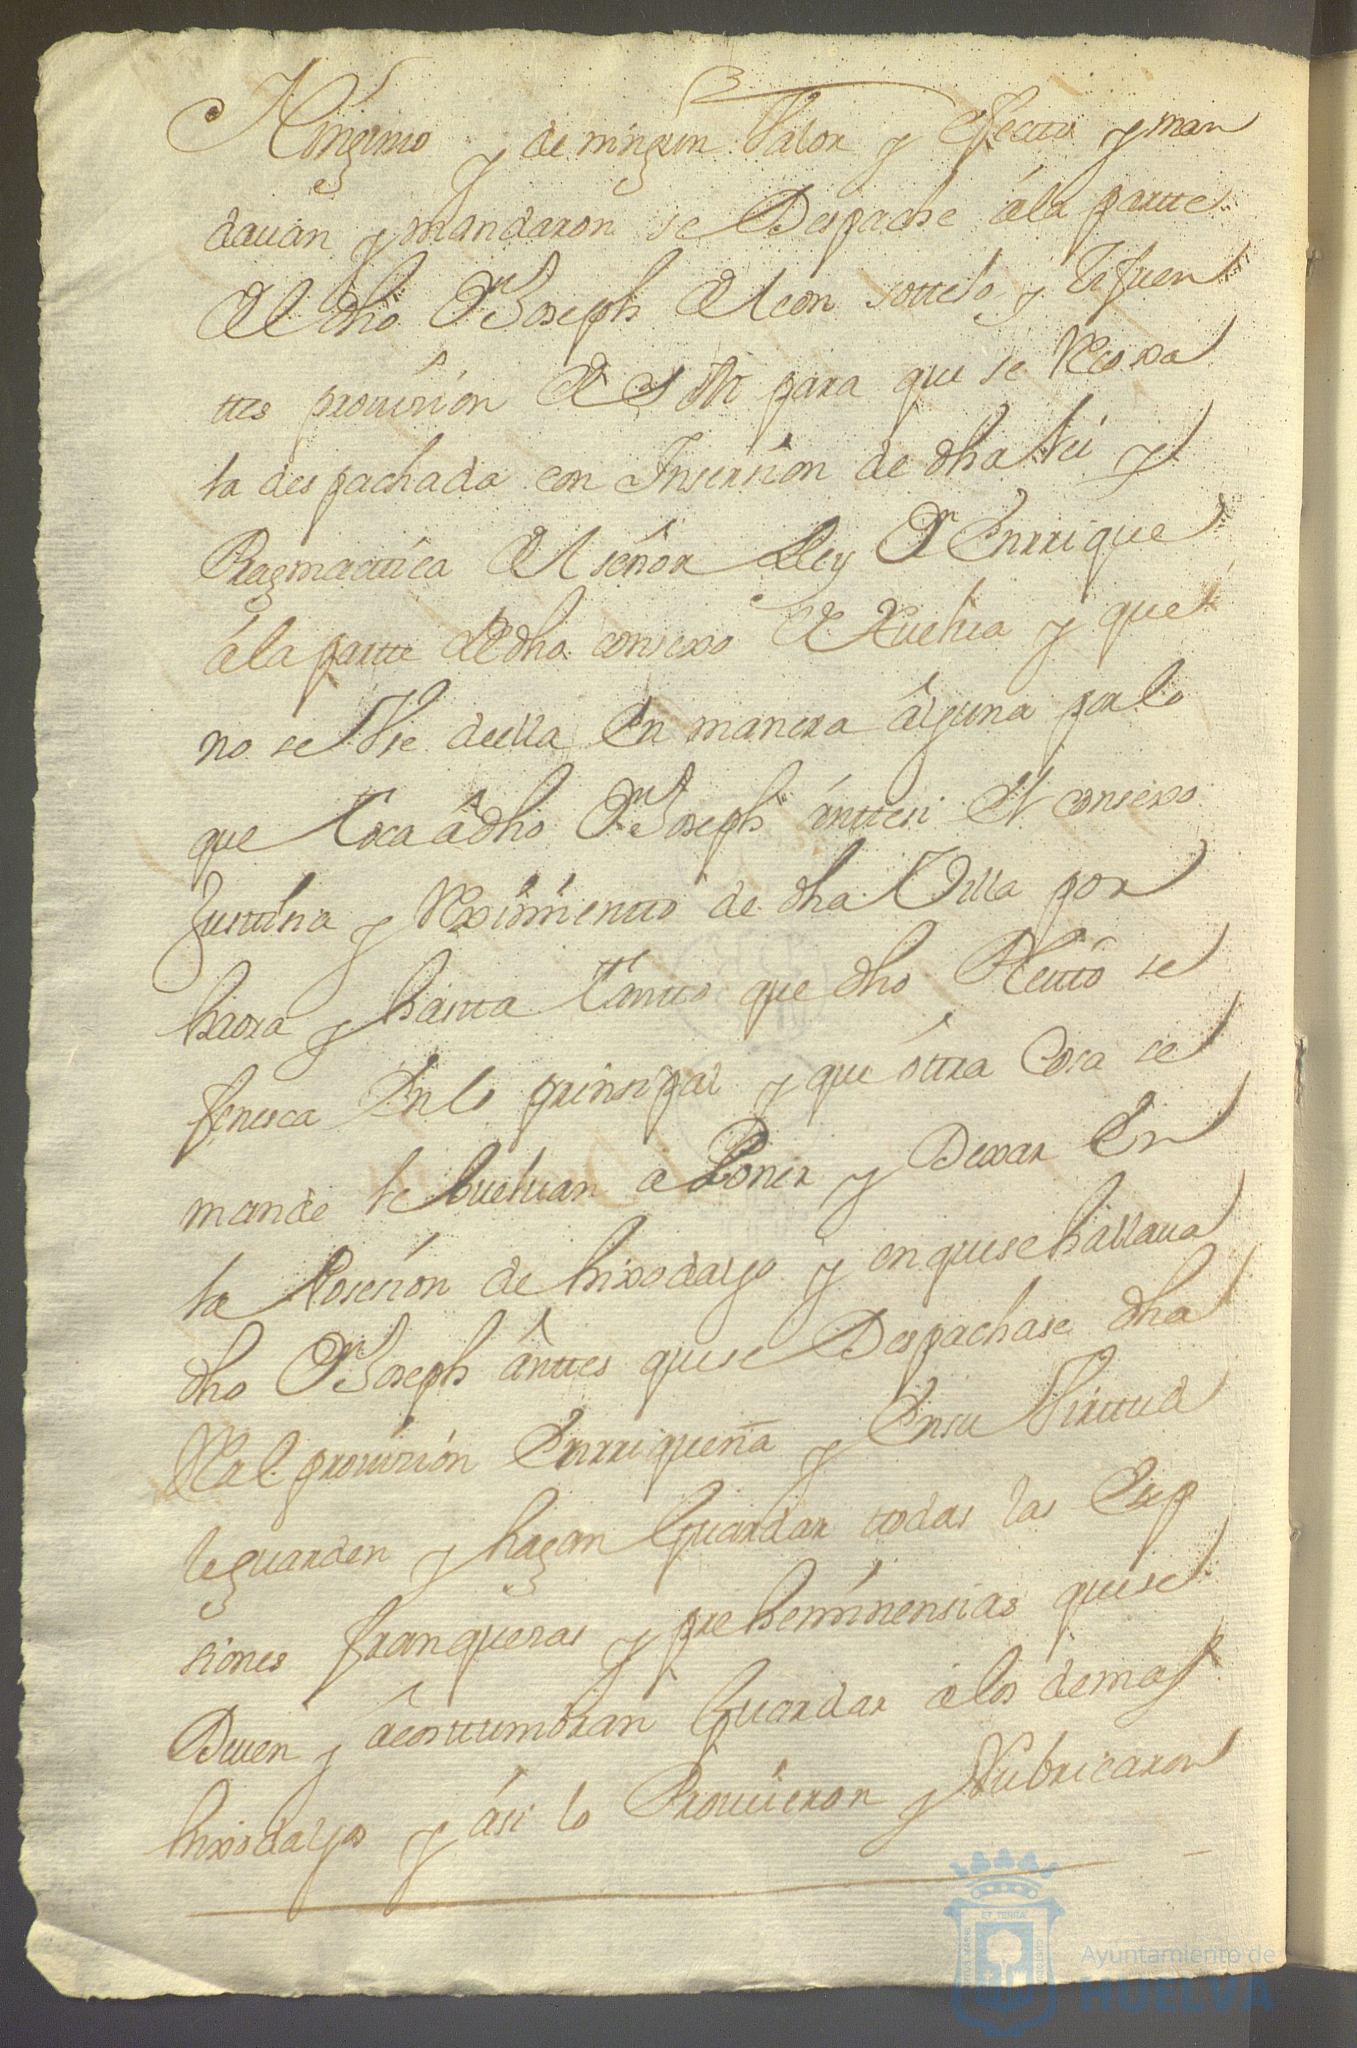 Ninguno y de ningun Valor y Efecto y man
dauan y mandaron se Despache á la partte
Del dho Dn Joseph de Leon sottelo y Zifuen
ttes prouision de S M para que se Recoxa
la despachada con Insersion de dha Lei y
Pragmattica del señor Rey Dn Enrrique
á la partte del dho consexo de Huelua y que
no se Vse de ella En manera alguna por lo
que toca á dho Dn Joseph ánttes si el consexo
Justtisia y Reximientto de dha Villa por
haora y hastta tantto que dho Pleitto se
fenesca En lo prinsipal y que ottra Cosa se
mande le bueluan a Poner y Dexar En
la Posesion de hixodalgo y en que se hallaua
dho Dn Joseph ánttes que se Despachase dha
Real prouision Enrriqueña y En su Virttud
le guarden y hagan Guardar ttodas las Exsep
siones franquesas y preheminensias que se
Deuen y ácosttumbran Guardar á los demas
hixosdalgo y ási lo Proueieron y Rubricaron
Ayuntamiento de
HUELVA